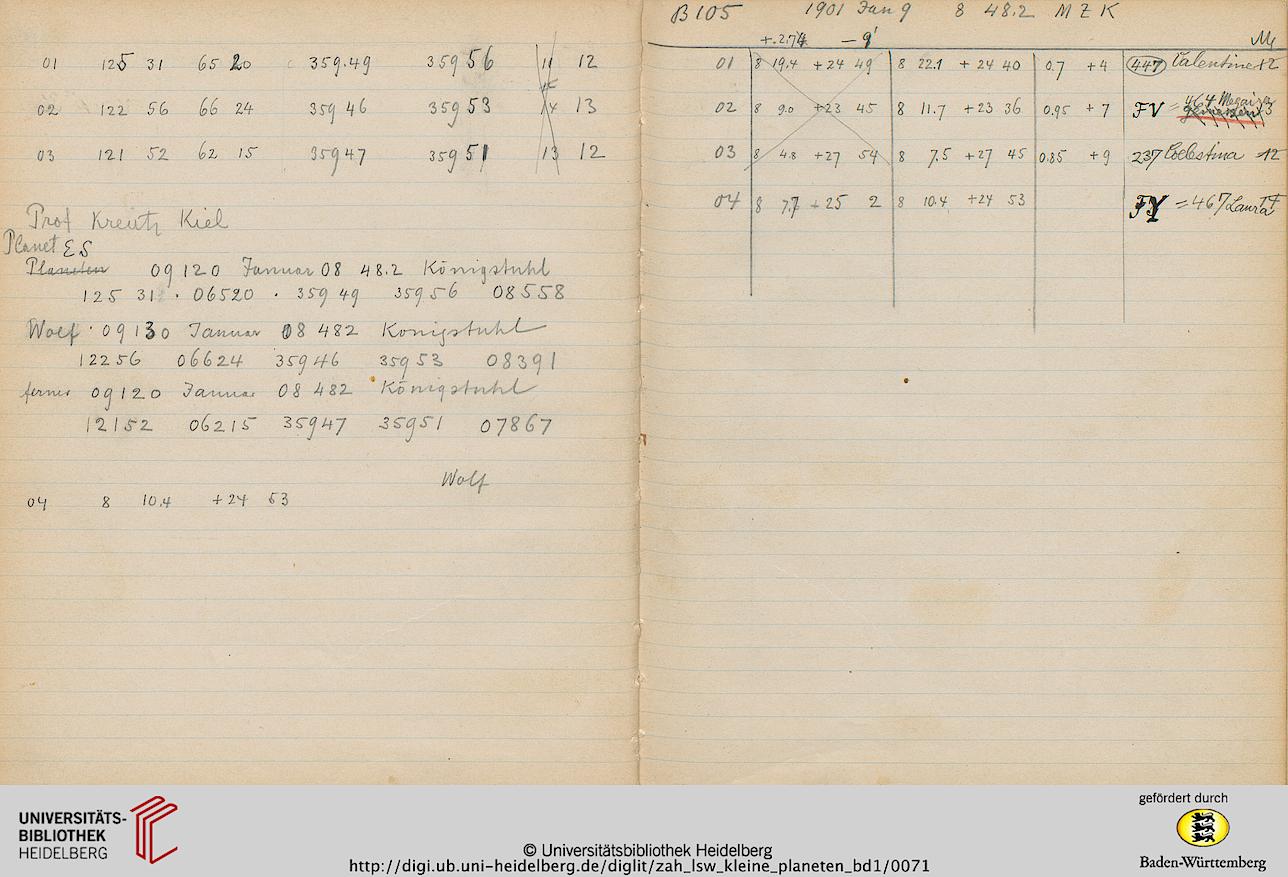 01 125 31 65 20 359.49 359 56 11 12
02 122 56 66 24 359 46 359 53 14 13
03 121 52 62 15 35947 359 51 13 12
Prof Kreutz Kiel
Planet ES
Planeten 09120 Januar 08 48.2 Königstuhl
125 31 . 06520 . 359 49 35956 08558
Wolf 09130 Januar 08 482 Königstuhl
12256 06624 35946 35953 08391
ferner 09120 Januar 08 482 Königstuhl
12152 06215 35947 35951 07867
Wolf
04 8 10.4 +24 53
B105 1901 Jan 9 8 48.2 M Z K
+2.74 –9'
M
01 8 19.4 +24 49 8 22.1 +24 40 0.7 +4 447 Valentine 12
02 8 9.0 +23 45 8 11.7 +23 36 0.95 +7 FV = 464 Megaira 13
03 8 4.8 +27 54 8 7.5 +27 45 0.85 +9 237 Coelestina 12
04 8 7.7 +25 2 8 10.4 +24 53 FY = 467 Laura 14
UNIVERSITÄTS-
BIBLIOTHEK
HEIDELBERG
© Universitätsbibliothek Heidelberg
http://digi.ub.uni-heidelberg.de/diglit/zah_lsw_kleine_planeten_bd1/0071
gefördert durch
Baden-Württemberg